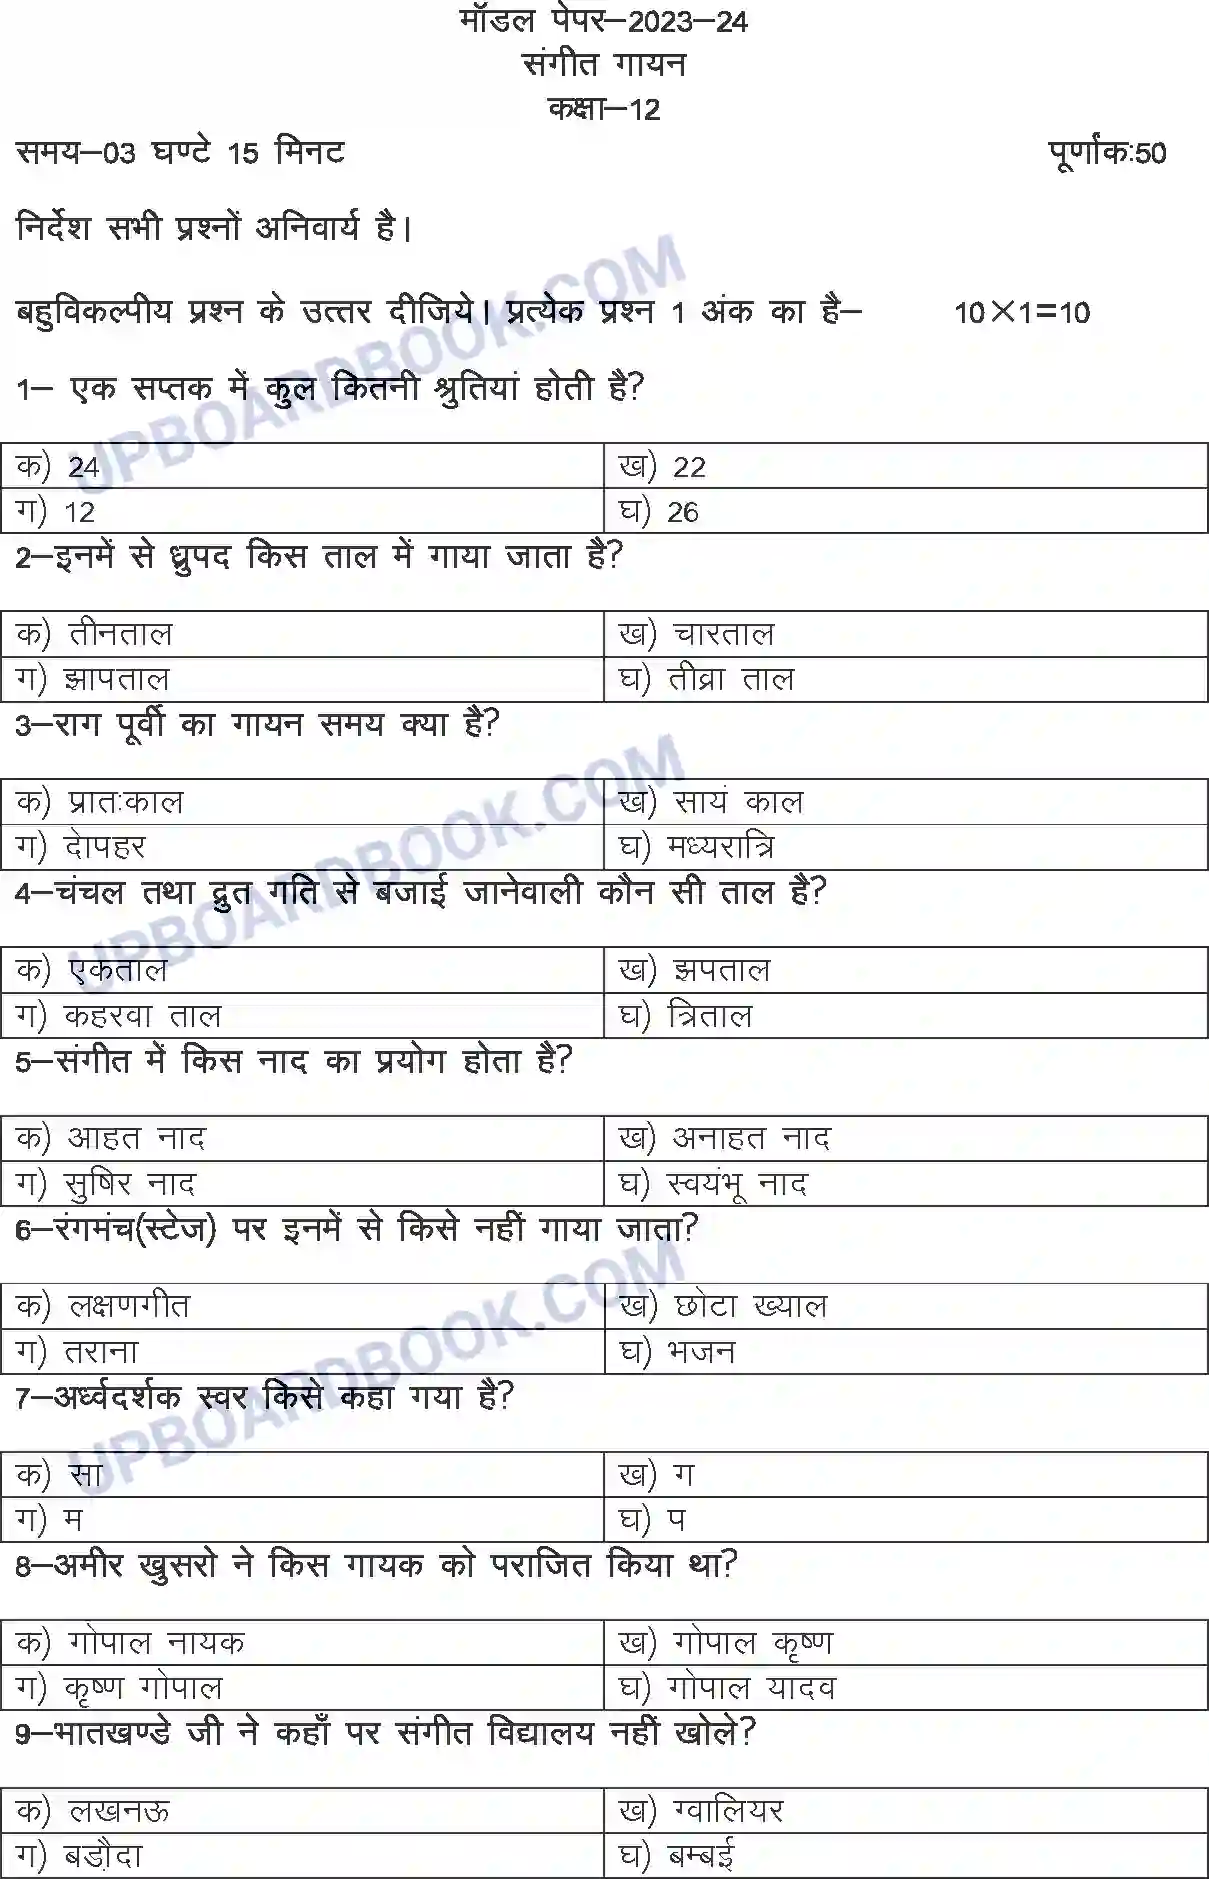 मॉडल पेपर–2023–24
संगीत गायन
कक्षा–12
समय–03 घण्टे 15 मिनट पूर्णांक:50
निर्देश सभी प्रश्नों अनिवार्य है।
बहुविकल्पीय प्रश्न के उत्तर दीजिये। प्रत्येक प्रश्न 1 अंक का है– 10×1=10
1– एक सप्तक में कुल कितनी श्रुतियां होती है?
क) 24 ख) 22
ग) 12 घ) 26
2–इनमें से ध्रुपद किस ताल में गाया जाता है?
क) तीनताल ख) चारताल
ग) झापताल घ) तीव्रा ताल
3–राग पूर्वी का गायन समय क्या है?
क) प्रातःकाल ख) सायं काल
ग) देापहर घ) मध्यरात्रि
4–चंचल तथा द्रुत गति से बजाई जानेवाली कौन सी ताल है?
क) एकताल ख) झपताल
ग) कहरवा ताल घ) त्रिताल
5–संगीत में किस नाद का प्रयोग होता है?
क) आहत नाद ख) अनाहत नाद
ग) सुषिर नाद घ) स्वयंभू नाद
6–रंगमंच(स्टेज) पर इनमें से किसे नहीं गाया जाता?
क) लक्षणगीत ख) छोटा ख्याल
ग) तराना घ) भजन
7–अर्ध्वदर्शक स्वर किसे कहा गया है?
क) सा ख) ग
ग) म घ) प
8–अमीर खुसरो ने किस गायक को पराजित किया था?
क) गोपाल नायक ख) गोपाल कृष्ण
ग) कृष्ण गोपाल घ) गोपाल यादव
9–भातखण्डे जी ने कहाँ पर संगीत विद्यालय नहीं खोले?
क) लखनऊ ख) ग्वालियर
ग) बड़ौदा घ) बम्बई
UPBOARDBOOK.COM
UPBOARDBOOK.COM
UPBOARDBOOK.COM